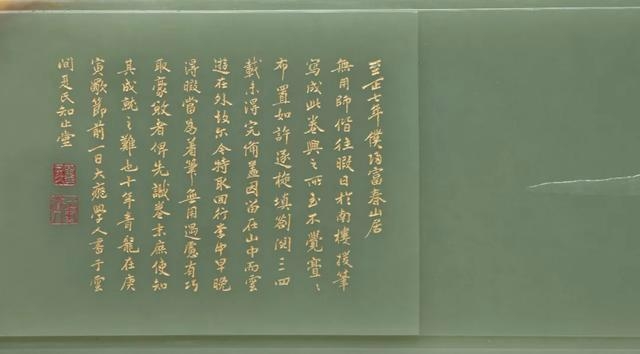 至正七年僕歸富春山居
無用師偕往暇日於南樓援筆
寫成此卷興之所至不覺亹々
布置如許逐旋填劄閱三四
載未得完備盖因留在山中而雲
遊在外故尔今特取回行李中早晚
得暇當為著筆無用過慮有巧
取豪敓者俾先識卷末庶使知
其成就之難也十年青龍在庚
寅歜節前一日大癡學人書于雲
間夏氏知止堂